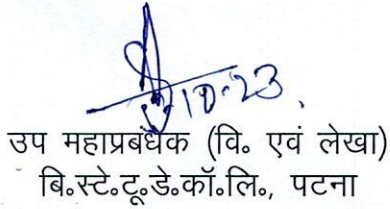 10-23.
उप महाप्रबंधक (वि॰ एवं लेखा)
बि॰स्टे॰टू॰डे॰कॉ॰लि॰, पटना